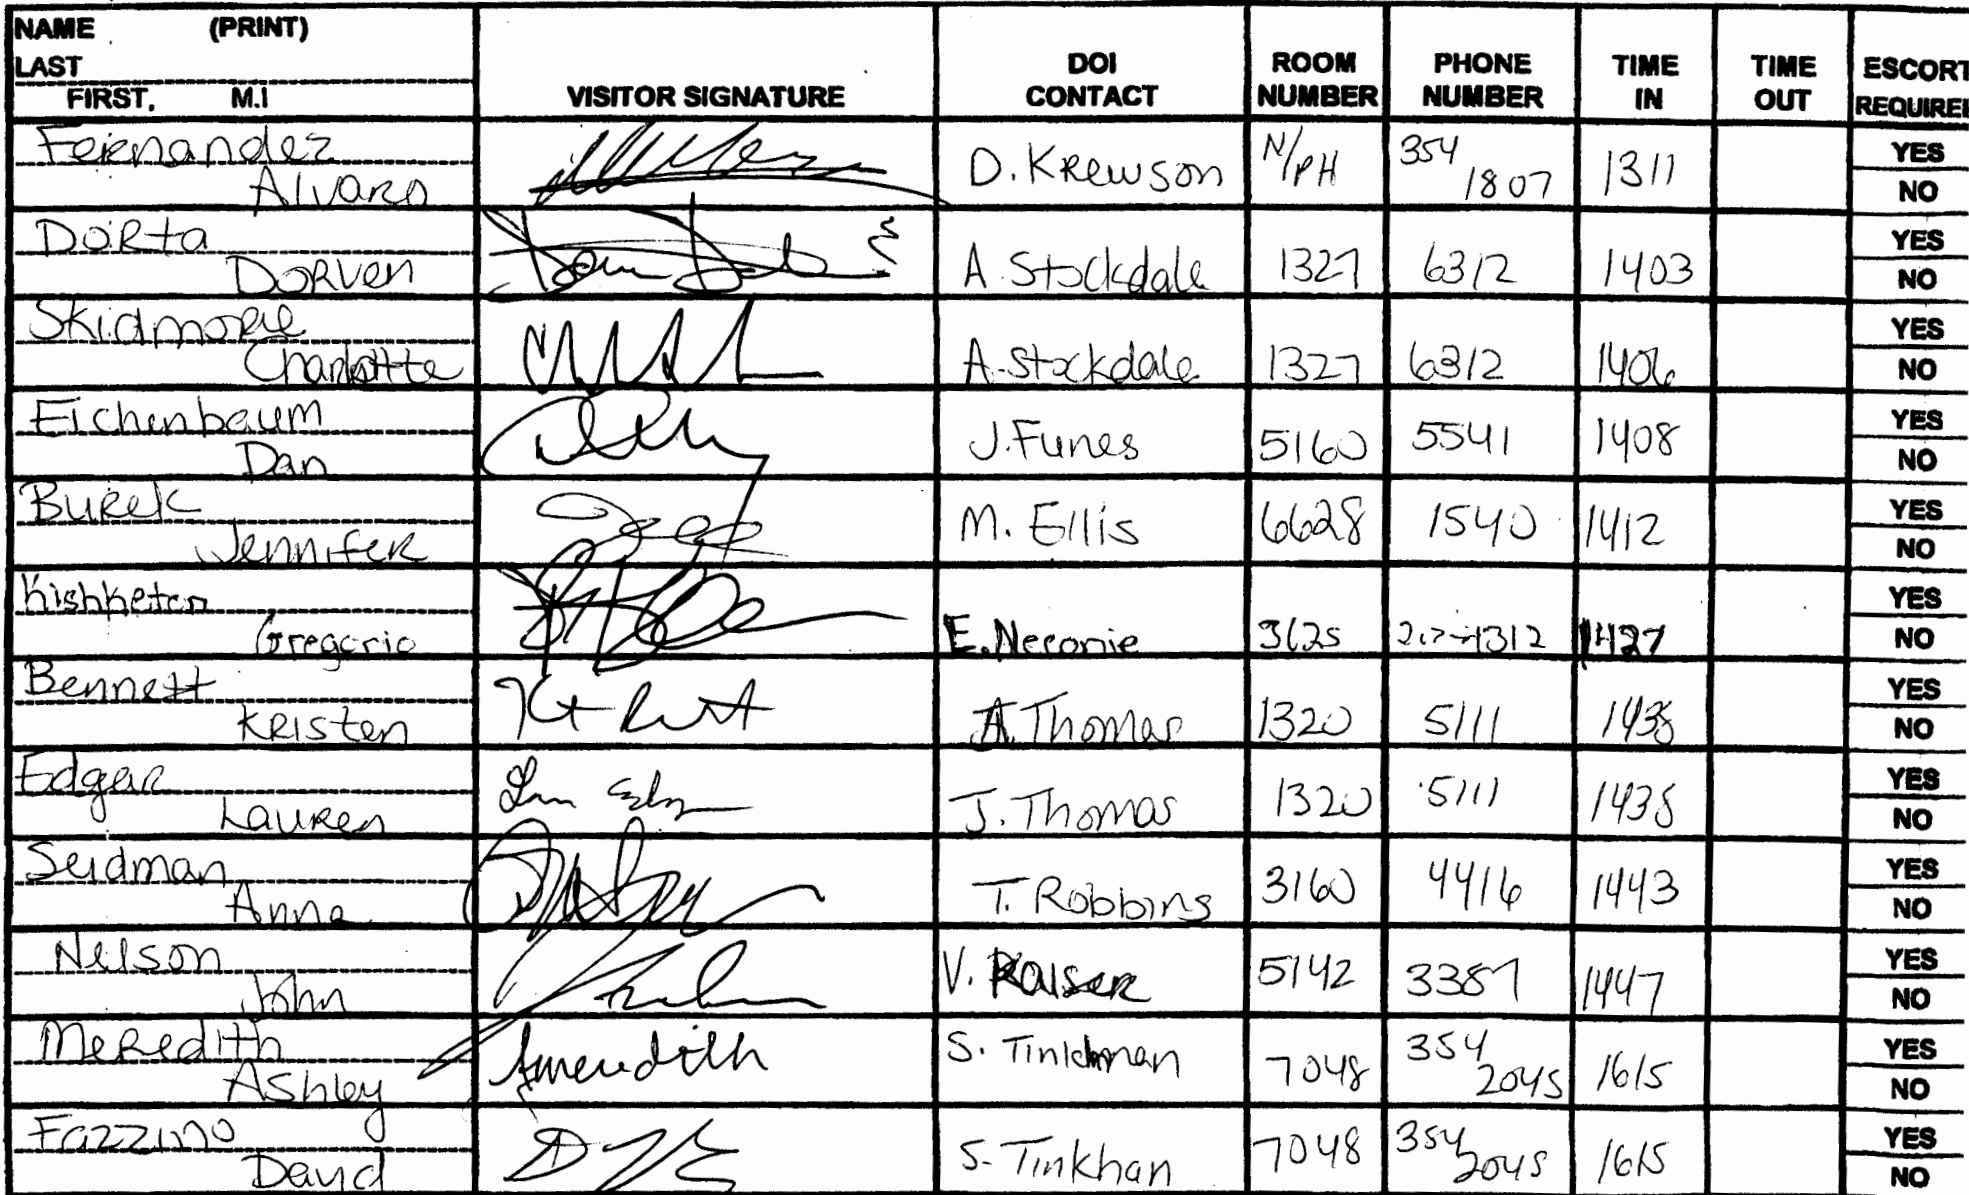 NAME (PRINT)
LAST
FIRST, M.I
VISITOR SIGNATURE
DOI CONTACT
ROOM NUMBER
PHONE NUMBER
TIME IN
TIME OUT
ESCORT REQUIRED
Fernandez
Alvaro
D. Krewson N/PH 354 1807 1311 YES NO
Dorta
Dorven
A. Stockdale 1327 6312 1403 YES NO
Skidmore
Charlotte
A. Stockdale 1327 6312 1406 YES NO
Eichenbaum
Dan
J. Funes 5160 5541 1408 YES NO
Burek
Jennifer
M. Ellis 6628 1540 1412 YES NO
Kishketon
Gregorio
E. Neconie 3625 1427 YES NO
Bennett
Kristen
A. Thomas 1320 5111 1438 YES NO
Edgar
Lauren
J. Thomas 1320 5111 1438 YES NO
Seidman
Anna
T. Robbins 3160 4416 1443 YES NO
Nelson
John
V. Kaiser 5142 3387 1447 YES NO
Meredith
Ashley
Ameredith
S. Tinkhman 7048 354 2045 1615 YES NO
Fazzino
David
S. Tinkhan 7048 354 2045 1615 YES NO